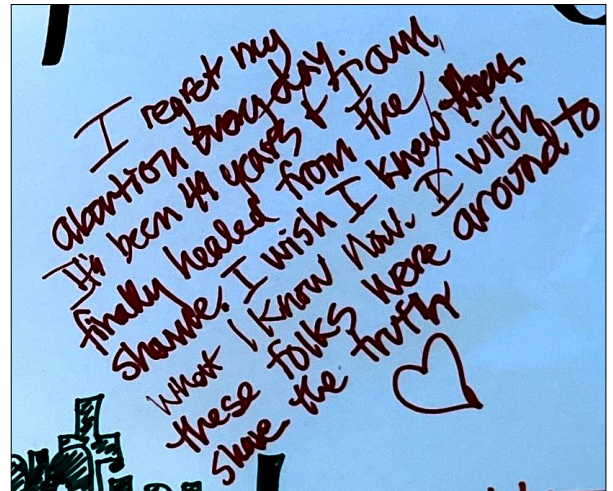 I regret my
abortion every day.
It's been 49 years & I am
finally healed from the
shame. I wish I knew then
what I know now. I wish
these folks were around to
share the truth